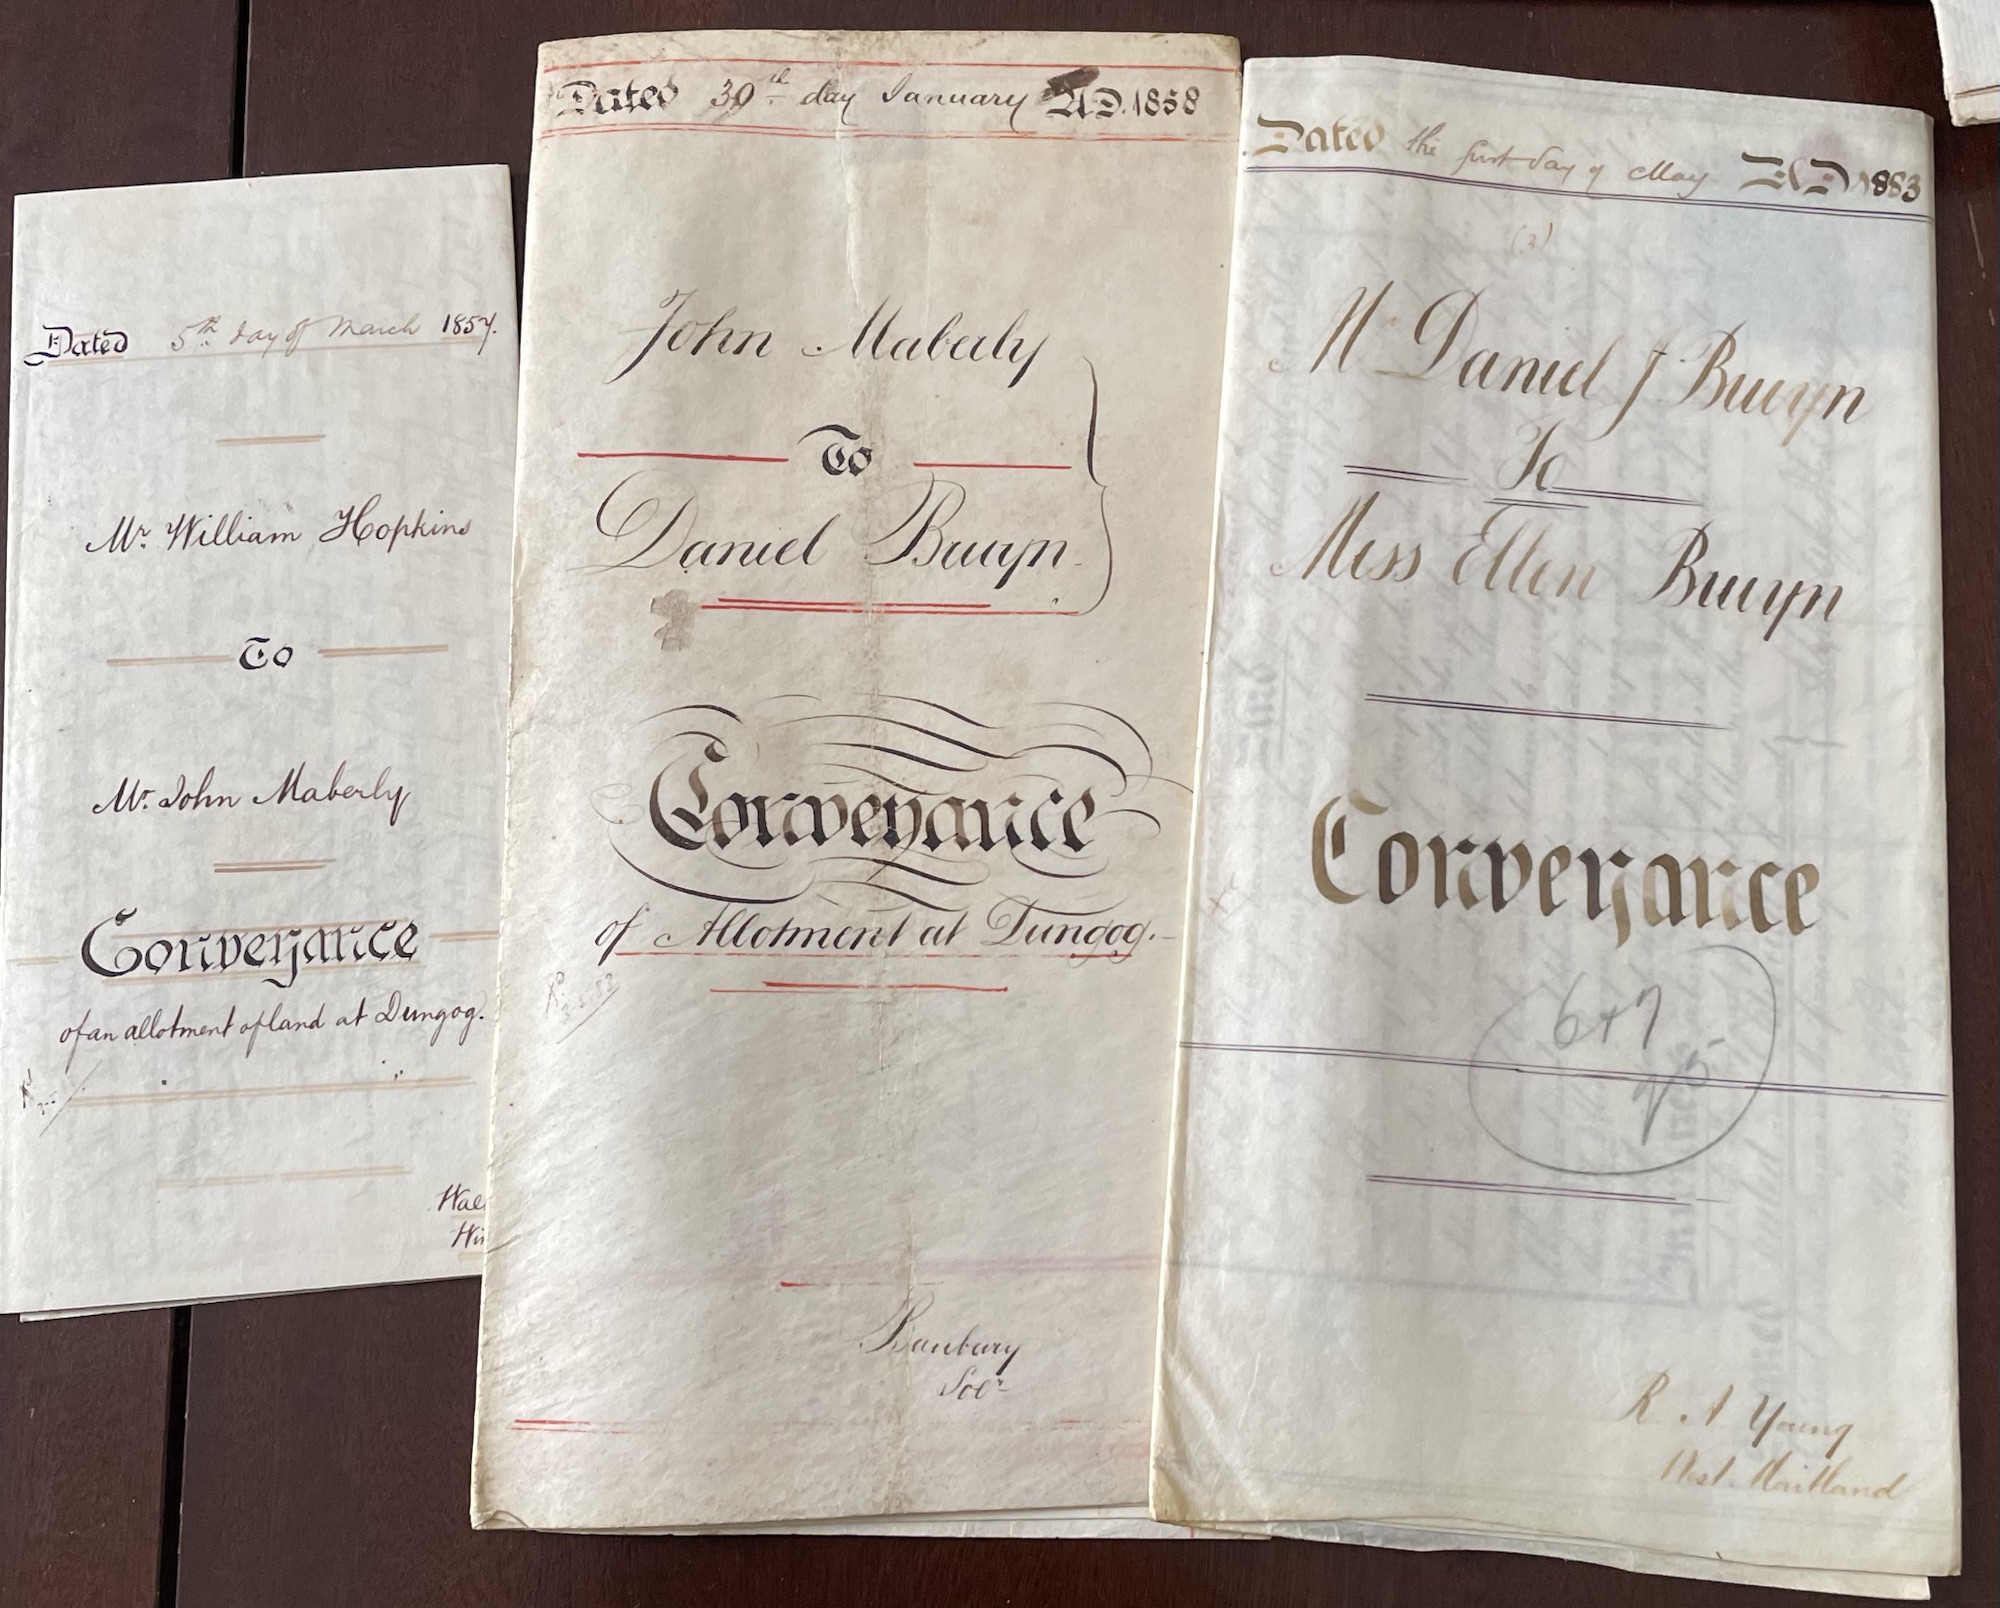 Dated 5th day of March 1857.
Mr. William Hopkins
To
Mr. John Maberly
Conveyance
of an allotment of land at Dungog.
Dated 30th day January A.D. 1858
John Maberly
To
Daniel Bruyn
Conveyance
of Allotment at Dungog.
Banbury
Solr
Dated the first day of May AD 1883
(3)
Mr Daniel J. Bruyn
To
Miss Ellen Bruyn
Conveyance
6+7
R A Young
West Maitland